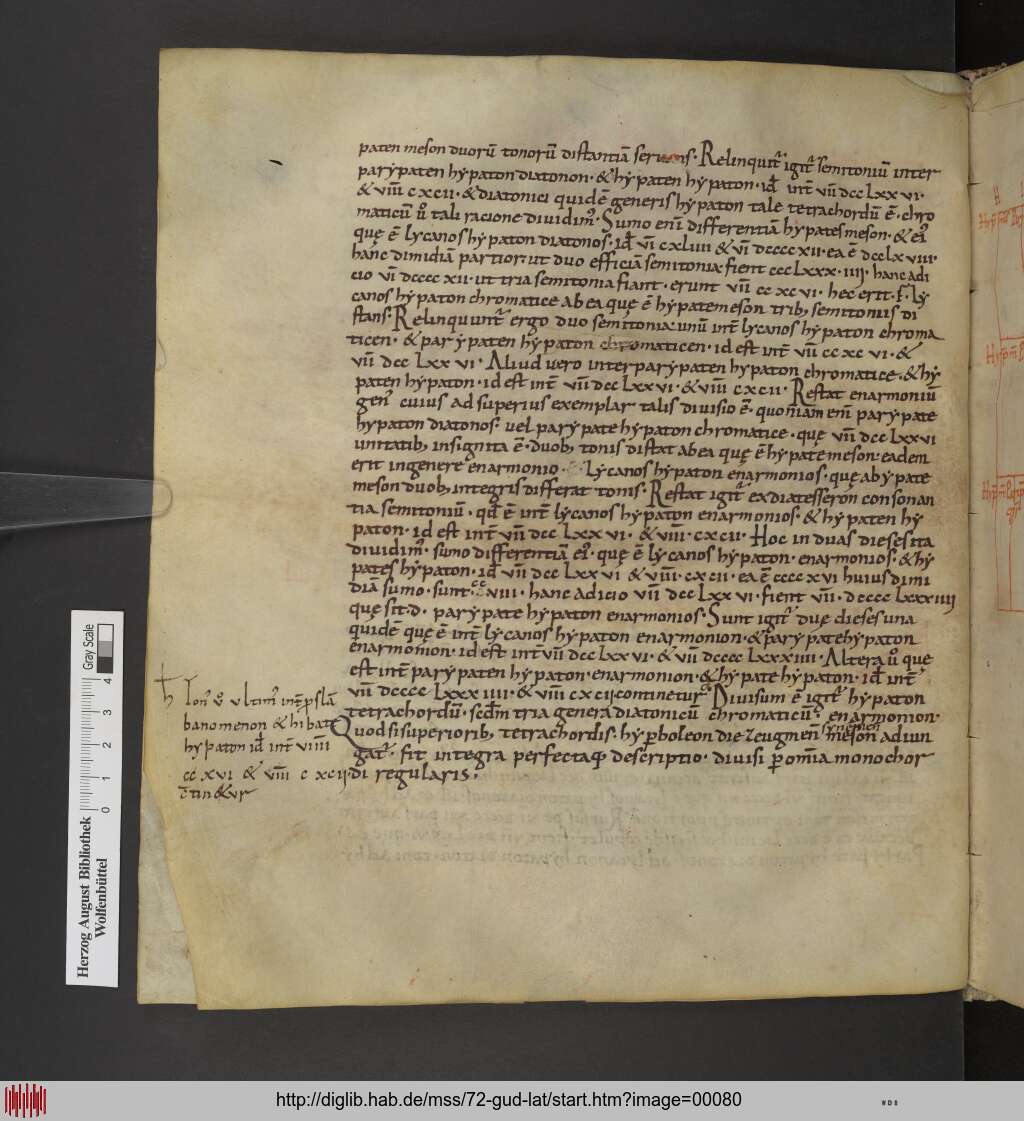 paten meson duorū tonorū distantiā seruans. Relinquit᷑ igit᷑ semitoniū inter
parẏpaten hẏpaton diatonon. & hẏpaten hẏpaton. id ē int̄ vii̅ dcc lxx vi.
& viiii̅ c xcii. & diatonici quidē generis hẏpaton tale tetrachordū ē. chro
maticū u̾ tali racione diuidim᷒. Sumo eni̅ differentiā hẏpates meson. & ei᷒
quę ē lycanos hẏpaton diatonos. id ē vi̅ c xliiii & vi̅ dcccc xii. ea ē dcc lx viii.
hanc dimidiā partior. ut duo efficiā semitonia. fient ccc lxxx. iiii. hanc adi
cio vi̅ dcccc xii. ut tria semitonia fiant. erunt vii̅ cc xc vi. hec erit. F. ly
canos hẏpaton chromatice ab ea quę ē hẏpate meson trib; semitoniis di
stans. Relinquunt᷑ ergo duo semitonia. unū int̄ lycanos hẏpaton chroma
ticen. & parẏpaten hẏpaton chromaticen. id est int̄ vii̅ cc xc vi. &
vii̅ dcc lxx vi. Aliud uero inter parẏpaten hẏpaton chromatice. & hẏ
paten hẏpaton. id est int̄ vii̅ dcc lxx vi. & viiii̅ c xcii. Restat enarmoniū
gen᷒ cuius ad superius exemplar talis diuisio ē. quoniam eni̅ parẏpate
hẏpaton diatonos. uel parẏpate hẏpaton chromatice. quę vii̅ dcc lxx vi
unitatib; insignita ē. duob; tonis distat ab ea quę ē hẏpate meson. eadem
erit in genere enarmonio. Lẏcanos hẏpaton enarmonios. quę ab ẏpate
meson duob; integris differat tonis. Restat igit᷑ ex diatesseron consonan
tia. semitoniū. qd̄ ē int̄ lẏcanos hẏpaton enarmonios. & hẏpaten hẏ
paton. id est int̄ vii̅ dcc lxx vi. & viiii̅. c xcii. Hoc in duas dieses ita
diuidim᷒. sumo differentiā ei᷒. quę ē lẏcanos hẏpaton. enarmonios. & hẏ
pates hẏpaton. id ē vii̅ dcc lxx vi & viiii̅. c xcii. ea ē cccc x vi huius dimi
diā sumo. sunt. cc viii. hanc adicio vii̅ dcc lxx vi. fient vii̅. dcccc lxxx iiii
quę sit. d. parẏpate hẏpaton enarmonios. Sunt igit᷑ duę dieses una
quidē quę ē int̄ lẏcanos hẏpaton enarmonion. & parẏpate hẏpaton
enarmonion. id est int̄ vii̅ dcc lxx vi. & vii̅ dcccc lxxx iiii. Altera u̾ que
est int̄ parẏpaten hẏpaton. enarmonion. & hẏpate hẏpaton. id ē int̄
vii̅ dcccc lxxx iiii. & viiii̅ c xcii continetur. Diuisum ē igit᷑ hẏpaton
tetrachordū. scdm̄ tria genera diatonicū chromaticū. enarmonion.
Quod si superiorib; tetrachordis. hẏꝑboleon. die-zeugmen̄ synemmen̄ meson adiun
gat᷑. fit integra perfectaq; descriptio. diuisi ꝑ omia monochor
di regularis.
ħ
Ton᷒ u̾ ultim᷒ int̄ ꝓslā
banomenon & hi bate
hẏpaton id ē int̄ viiii̅
cc xvi & viiii̅ c xcii
ꝯtin&ur
Herzog August Bibliothek
Wolfenbüttel
Gray Scale
0 1 2 3 4
http://diglib.hab.de/mss/72-gud-lat/start.htm?image=00080